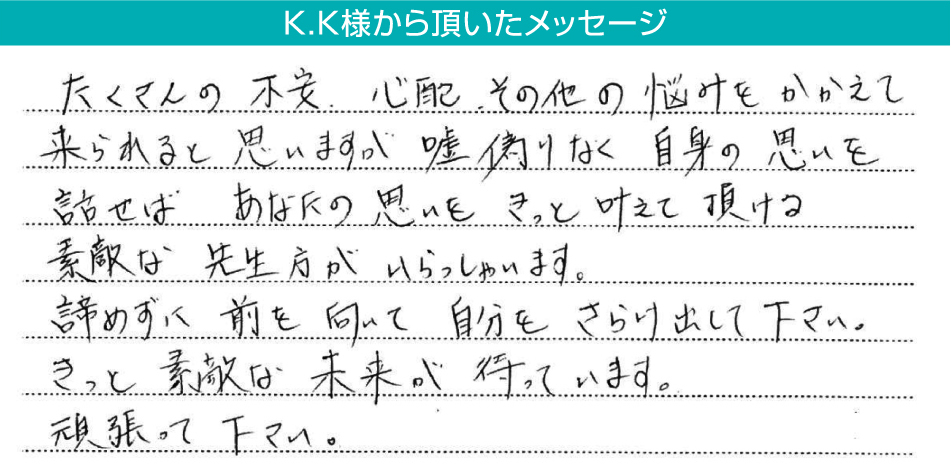 K.K様から頂いたメッセージ
たくさんの 不安、心配、その他の悩みをかかえて
来られると思いますが 嘘偽りなく 自身の思いを
話せば あなたの思いを きっと叶えて頂ける
素敵な 先生方が いらっしゃいます。
諦めずに 前を向いて 自分を さらけ出して下さい。
きっと 素敵な 未来が 待っています。
頑張って下さい。